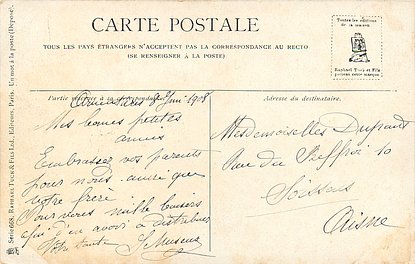 CARTE POSTALE
TOUS LES PAYS ÉTRANGERS N'ACCEPTENT PAS LA CORRESPONDANCE AU RECTO
(SE RENSEIGNER À LA POSTE)
Toutes les éditions
de la maison
Raphael Tuck et Fils
portent cette marque
Série 668. RAPHAEL TUCK & FILS Ltd., Editeurs, Paris. Un mot à la poste (Déposé).
Partie réservée à la correspondance.
1908
Mes bonnes petites
amies
Embrassez vos parents
pour nous ainsi que
votre frère
Pour vous mille baisers
à distribuer
Votre tante
Adresse du destinataire.
Mesdemoiselles Dupont
Rue du Beffroi 10
Soissons
Aisne